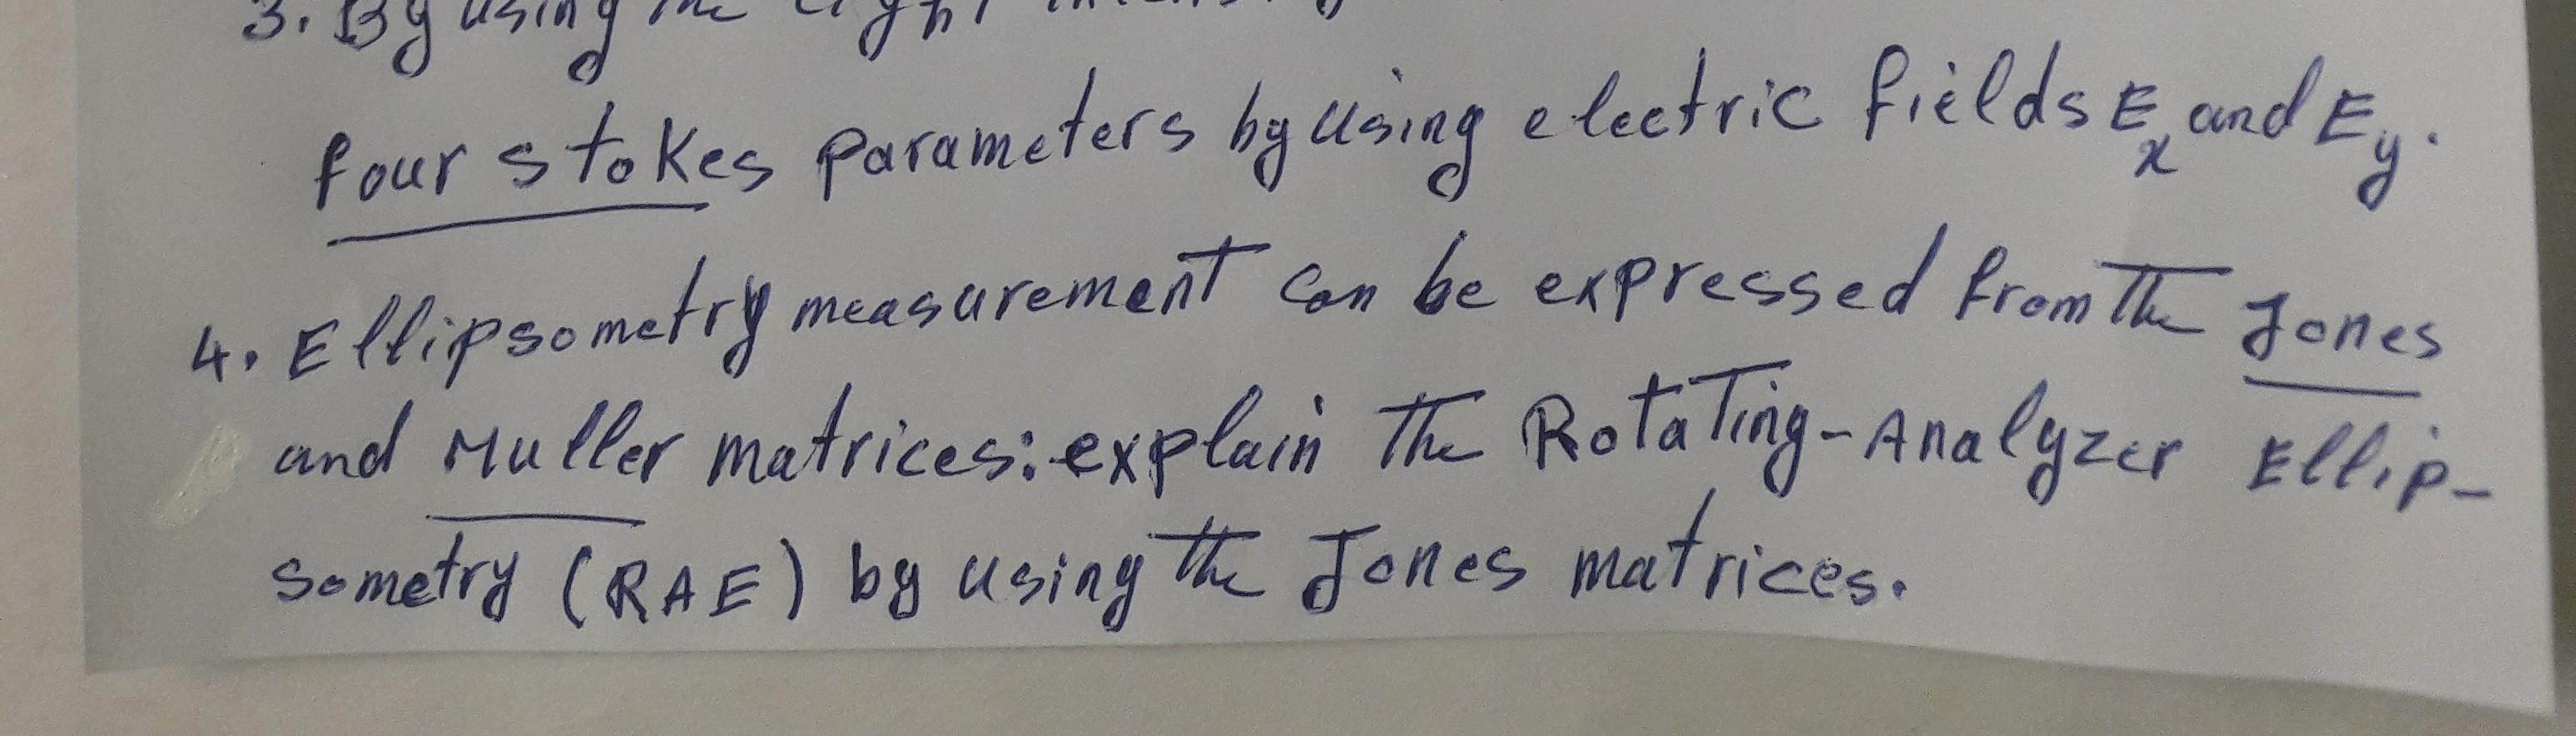 3. By using the light
four stokes parameters by using electric fields Ex and Ey.
4. Ellipsometry measurement can be expressed from the Jones
and Muller matrices: explain the Rotating-Analyzer Ellip-
sometry (RAE) by using the Jones matrices.